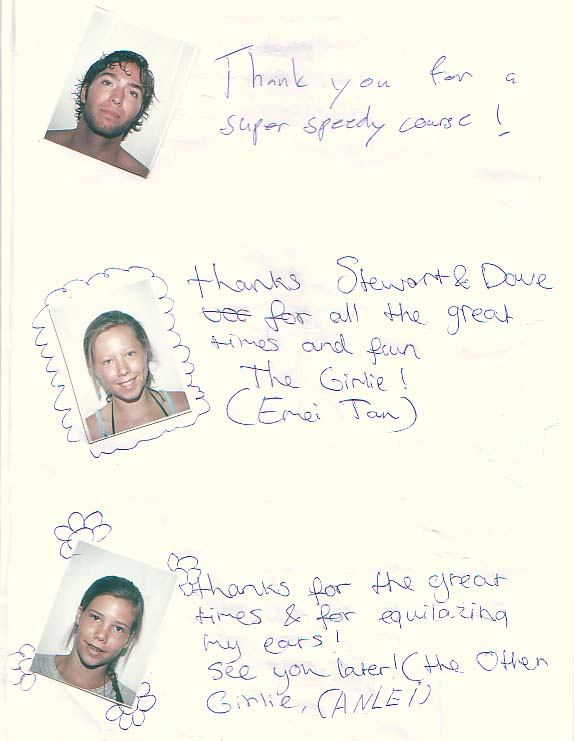 Thank you for a
super speedy course!
thanks Stewart & Dave
for all the great
times and fun
The Girlie!
(Emei Tan)
thanks for the great
times & for equilazing
my ears!
see you later! (the Other
Girlie, (ANLEI)